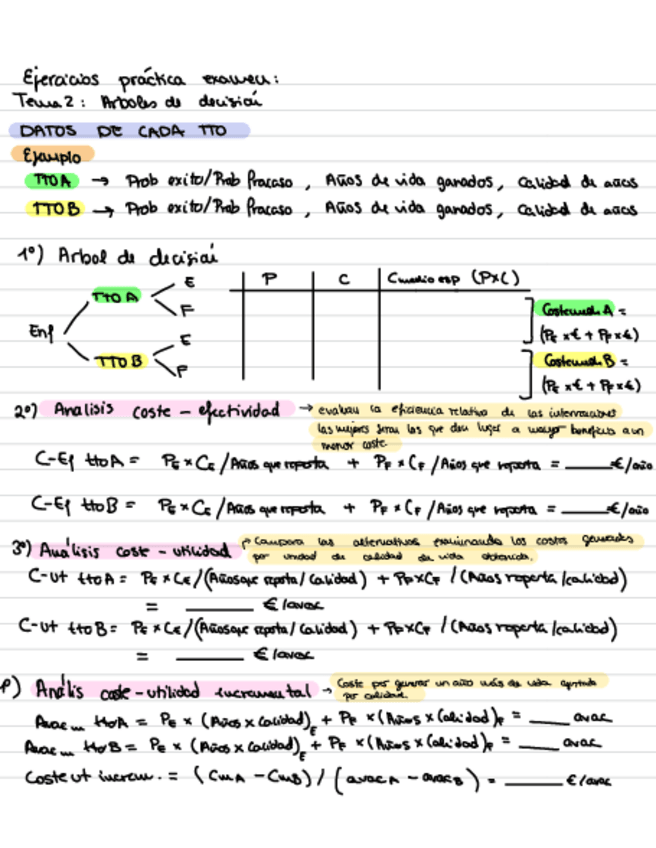 Ejercicios práctica examen:
Tema 2: Arboles de decisión
DATOS DE CADA TTO
Ejemplo
TTO A → Prob exito/Prob Fracaso, Años de vida ganados, Calidad de años
TTO B → Prob exito/Prob Fracaso, Años de vida ganados, Calidad de años
1º) Arbol de decisión
P C Cmedio esp (PxC)
Enf
TTO A E F
TTO B E F
Costemed. A =
(PE x € + PF x €)
Costemed. B =
(PE x € + PF x €)
2º) Analisis coste - efectividad → evaluan la eficiencia relativa de las intervenciones
las mejores seran las que den lugar a mayor beneficio a un
menor coste.
C-Ef tto A = PE x CE / Años que reporta + PF x CF / Años que reporta = ____ €/año
C-Ef tto B = PE x CE / Años que reporta + PF x CF / Años que reporta = ____ €/año
3º) Análisis coste - utilidad → Compara las alternativas examinando los costes generados
por unidad de calidad de vida obtenida.
C-ut tto A = PE x CE / (Años que reporta / Calidad) + PF x CF / (Años reporta / calidad)
= ____ €/avac
C-ut tto B = PE x CE / (Años que reporta / Calidad) + PF x CF / (Años reporta / calidad)
= ____ €/avac
Anális coste - utilidad incremental → Coste por generar un año más de vida ajustado
por calidad.
Avac m tto A = PE x (Años x Calidad)E + PF x (Años x Calidad)F = ____ avac
Avac m tto B = PE x (Años x Calidad)E + PF x (Años x Calidad)F = ____ avac
Coste ut increm. = (CmA - CmB) / (avac A - avac B) = ____ €/avac